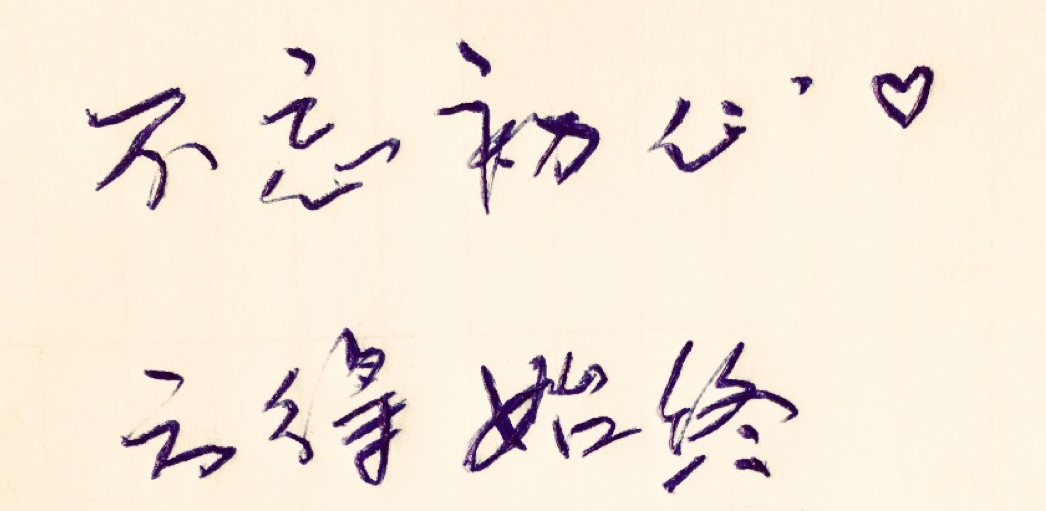 不忘初心 ♡
方得始终